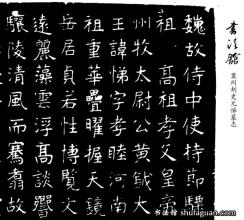 魏故侍中使持節驃
祖高祖孝
州牧太尉公黄鉞大
王諱悌字孝睦河南
祖重華疊曜握天鏡
岳居貞若性博覽文
遠麗藻雲浮高談響
驤陵清風而騫翥故
書法館
冀州刺史元悌墓志
书法馆 shufaguan.com